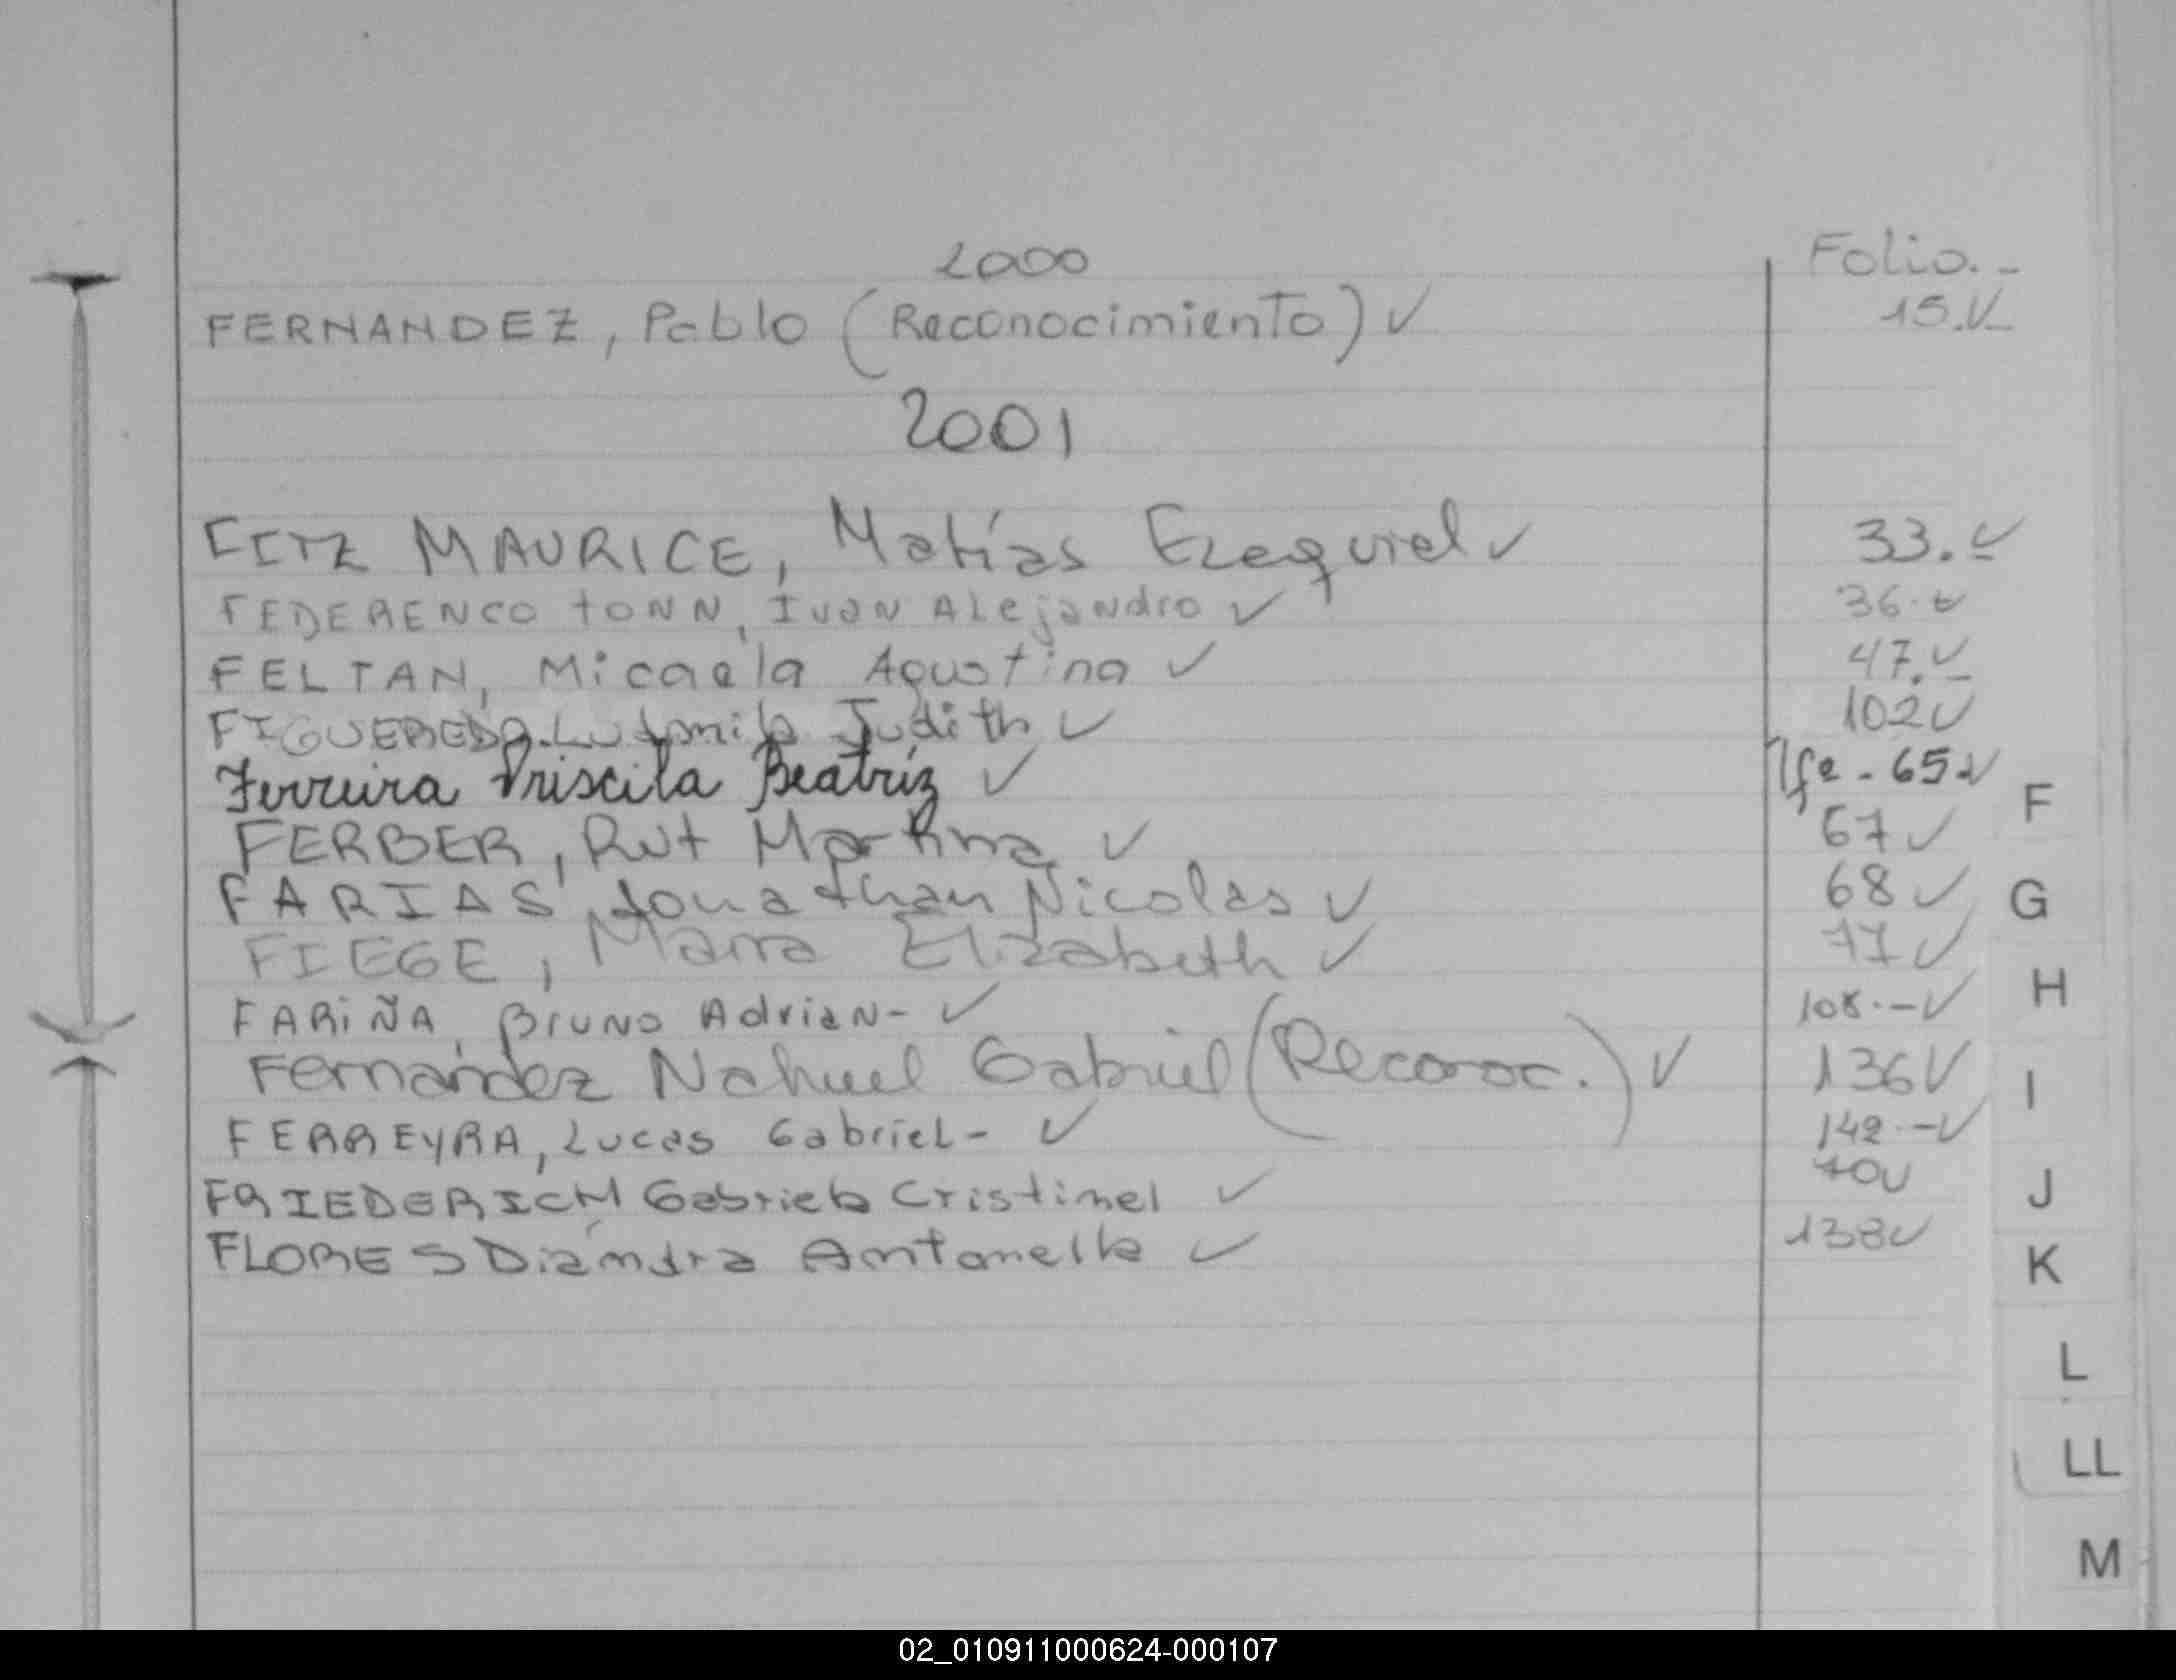 2000 Folio.-
FERNANDEZ, Pablo (Reconocimiento) ✓ 15.✓
2001
FITZ MAURICE, Matías Ezequiel ✓ 33.✓
FEDERENCO TONN, Ivan Alejandro ✓ 36.✓
FELTAN, Micaela Agustina ✓ 47.✓
FIGUEREDO Ludmila Judith ✓ 102✓
Ferreira Priscila Beatríz ✓ 65✓
FERBER, Rut Martina ✓ 67✓
FARIAS, Jonathan Nicolas ✓ 68✓
FIEGE, Maira Elizabeth ✓ 77✓
FARIÑA, Bruno Adrian- ✓ 108.-✓
Fernández Nahuel Gabriel (Reconoc.) ✓ 136✓
FERREYRA, Lucas Gabriel- ✓ 142.-✓
FRIEDERICH Gabriela Cristinel ✓ 70✓
FLORES Diandra Antonella ✓ 138✓
F
G
H
I
J
K
L
LL
M
02_010911000624-000107